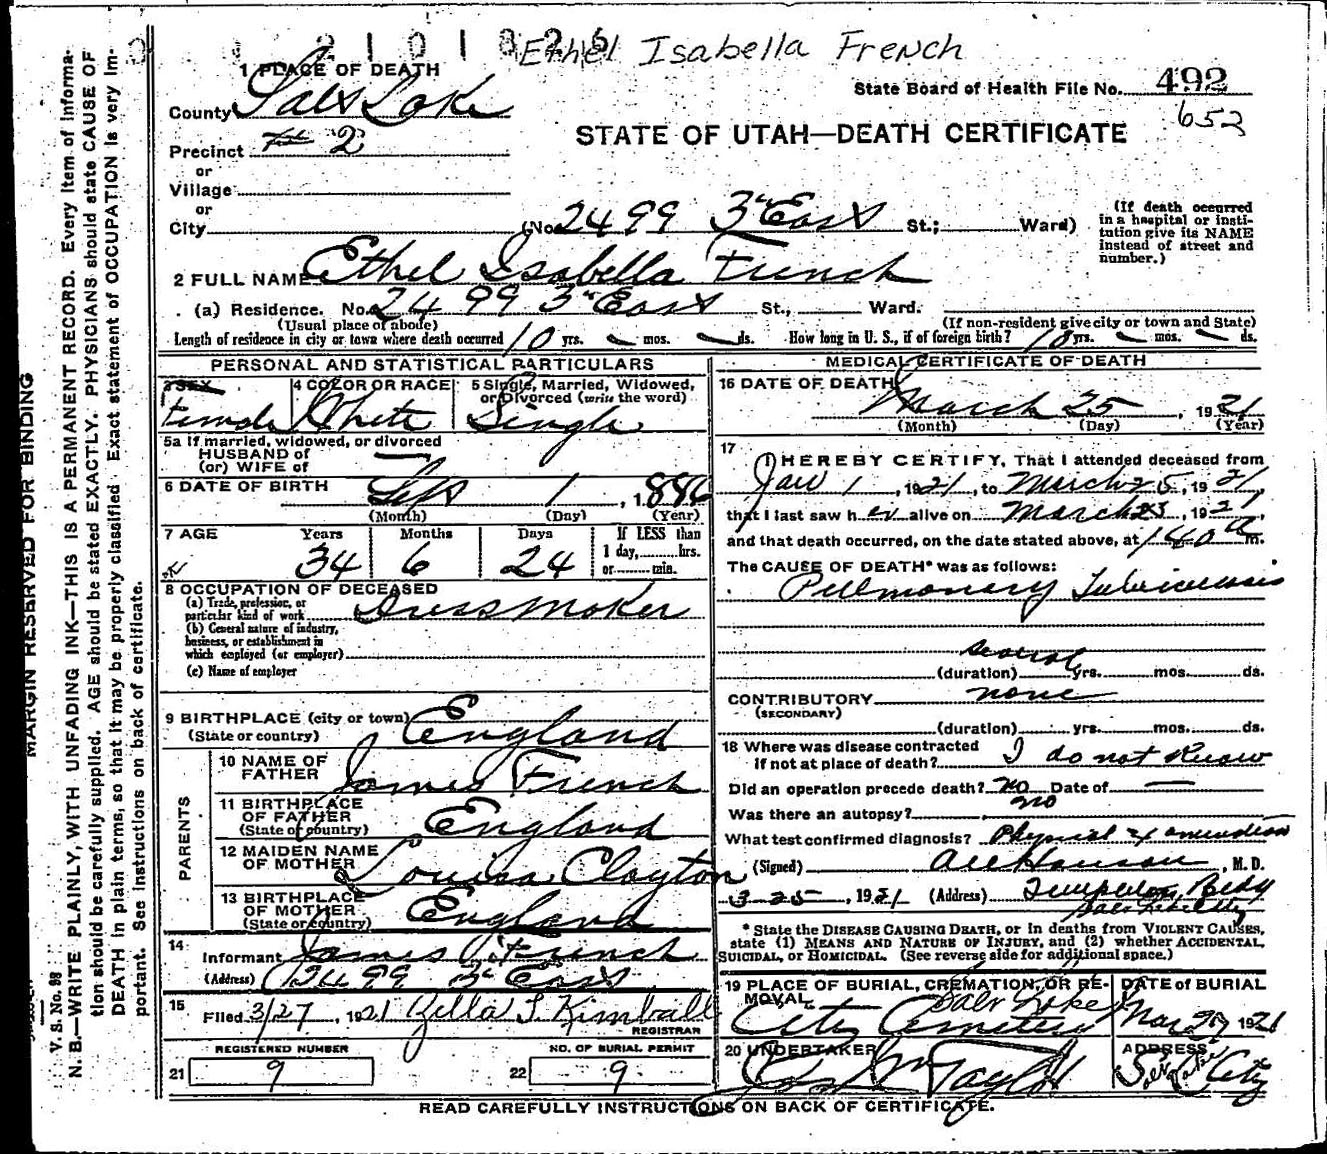 2101826 Ethel Isabella French
1 PLACE OF DEATH
State Board of Health File No. 492
County Salt Lake
652
STATE OF UTAH—DEATH CERTIFICATE
Precinct # 2
or
Village
or
City (No. 2499 3" East St.; Ward)
(If death occurred in a hospital or institution give its NAME instead of street and number.)
2 FULL NAME Ethel Isabella French
(a) Residence. No. 2499 3" East St., Ward.
(Usual place of abode) (If non-resident give city or town and State)
Length of residence in city or town where death occurred 10 yrs. — mos. — ds. How long in U. S., if of foreign birth? 10 yrs. — mos. — ds.
PERSONAL AND STATISTICAL PARTICULARS
3 SEX Female
4 COLOR OR RACE White
5 Single, Married, Widowed, or Divorced (write the word) Single
5a If married, widowed, or divorced
HUSBAND of
(or) WIFE of —
6 DATE OF BIRTH Sept 1, 1886
(Month) (Day) (Year)
7 AGE Years 34 Months 6 Days 24 If LESS than 1 day, hrs. or min.
8 OCCUPATION OF DECEASED
(a) Trade, profession, or particular kind of work Dressmaker
(b) General nature of industry, business, or establishment in which employed (or employer)
(c) Name of employer
9 BIRTHPLACE (city or town) England
(State or country)
PARENTS
10 NAME OF FATHER James French
11 BIRTHPLACE OF FATHER (State or country) England
12 MAIDEN NAME OF MOTHER Louisa Clayton
13 BIRTHPLACE OF MOTHER (State or country) England
14 Informant James French
(Address) 2499 3" East
15 Filed 3/27, 1921 Zella T. Kimball
REGISTRAR
REGISTERED NUMBER
21 9
NO. OF BURIAL PERMIT
22 9
MEDICAL CERTIFICATE OF DEATH
16 DATE OF DEATH
March 25, 1921
(Month) (Day) (Year)
17 I HEREBY CERTIFY, That I attended deceased from
Jan 1, 1921, to March 25, 1921,
that I last saw her alive on March 23, 1921,
and that death occurred, on the date stated above, at 140 a m.
The CAUSE OF DEATH* was as follows:
Pulmonary Tuberculosis
several
(duration) yrs. mos. ds.
CONTRIBUTORY none
(SECONDARY)
(duration) yrs. mos. ds.
18 Where was disease contracted
if not at place of death? I do not know
Did an operation precede death? no Date of —
Was there an autopsy? no
What test confirmed diagnosis? Physical examination
(Signed) Hanson, M. D.
3-25, 1921 (Address) Templeton Bldg
Salt Lake City
* State the DISEASE CAUSING DEATH, or in deaths from VIOLENT CAUSES, state (1) MEANS AND NATURE OF INJURY, and (2) whether ACCIDENTAL, SUICIDAL, or HOMICIDAL. (See reverse side for additional space.)
19 PLACE OF BURIAL, CREMATION, OR REMOVAL Salt Lake
City Cemetery
DATE of BURIAL
Mar 27 1921
20 UNDERTAKER
Taylor
ADDRESS
Salt Lake City
READ CAREFULLY INSTRUCTIONS ON BACK OF CERTIFICATE.
MARGIN RESERVED FOR BINDING
V. S. No. 98
N. B.—WRITE PLAINLY, WITH UNFADING INK—THIS IS A PERMANENT RECORD. Every item of information should be carefully supplied. AGE should be stated EXACTLY. PHYSICIANS should state CAUSE OF DEATH in plain terms, so that it may be properly classified. Exact statement of OCCUPATION is very important. See instructions on back of certificate.